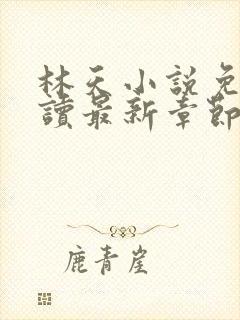 林天小說免
讀最新章節
鹿青崖